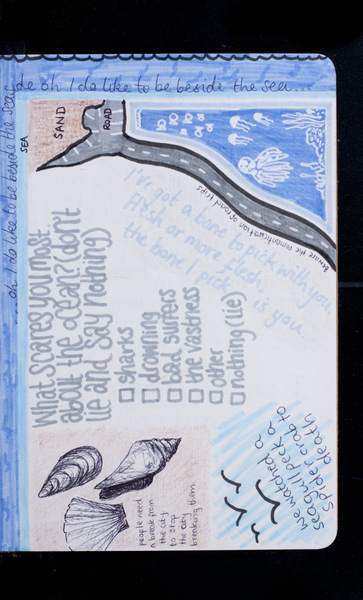 de oh I do like to be beside the sea...
...oh I do like to be beside the seasi
SEA
SAND
ROAD
Beware the romanticisation of road trips
I've got a bone to pick with you,
flesh or more flesh,
the bone I pick is you
What scares you most
about the ocean? (don't
lie and say nothing)
sharks
drowning
bad surfers
the vastness
other
nothing (lie)
we watched a
seagull peck a
spider crab to
death
people need
a break from
the city
to stop
the city
breaking them